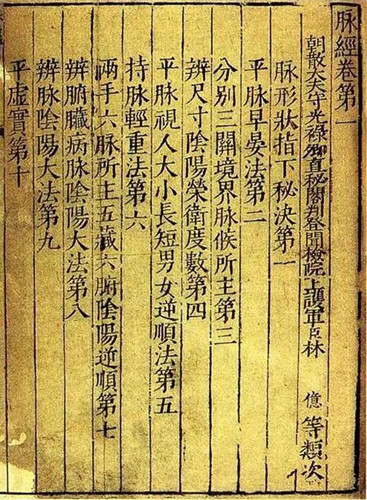 脉經卷第一
朝散大夫守光祿卿直秘閣判登聞檢院上護軍臣林億等類次
脉形狀指下秘決第一
平脉早晏法第二
分别三關境界脉候所主第三
辨尺寸陰陽榮衛度數第四
平脉視人大小長短男女逆順法第五
持脉輕重法第六
兩手六脉所主五藏六腑陰陽逆順第七
辨腑臓病脉陰陽大法第八
辨脉陰陽大法第九
平虚實第十